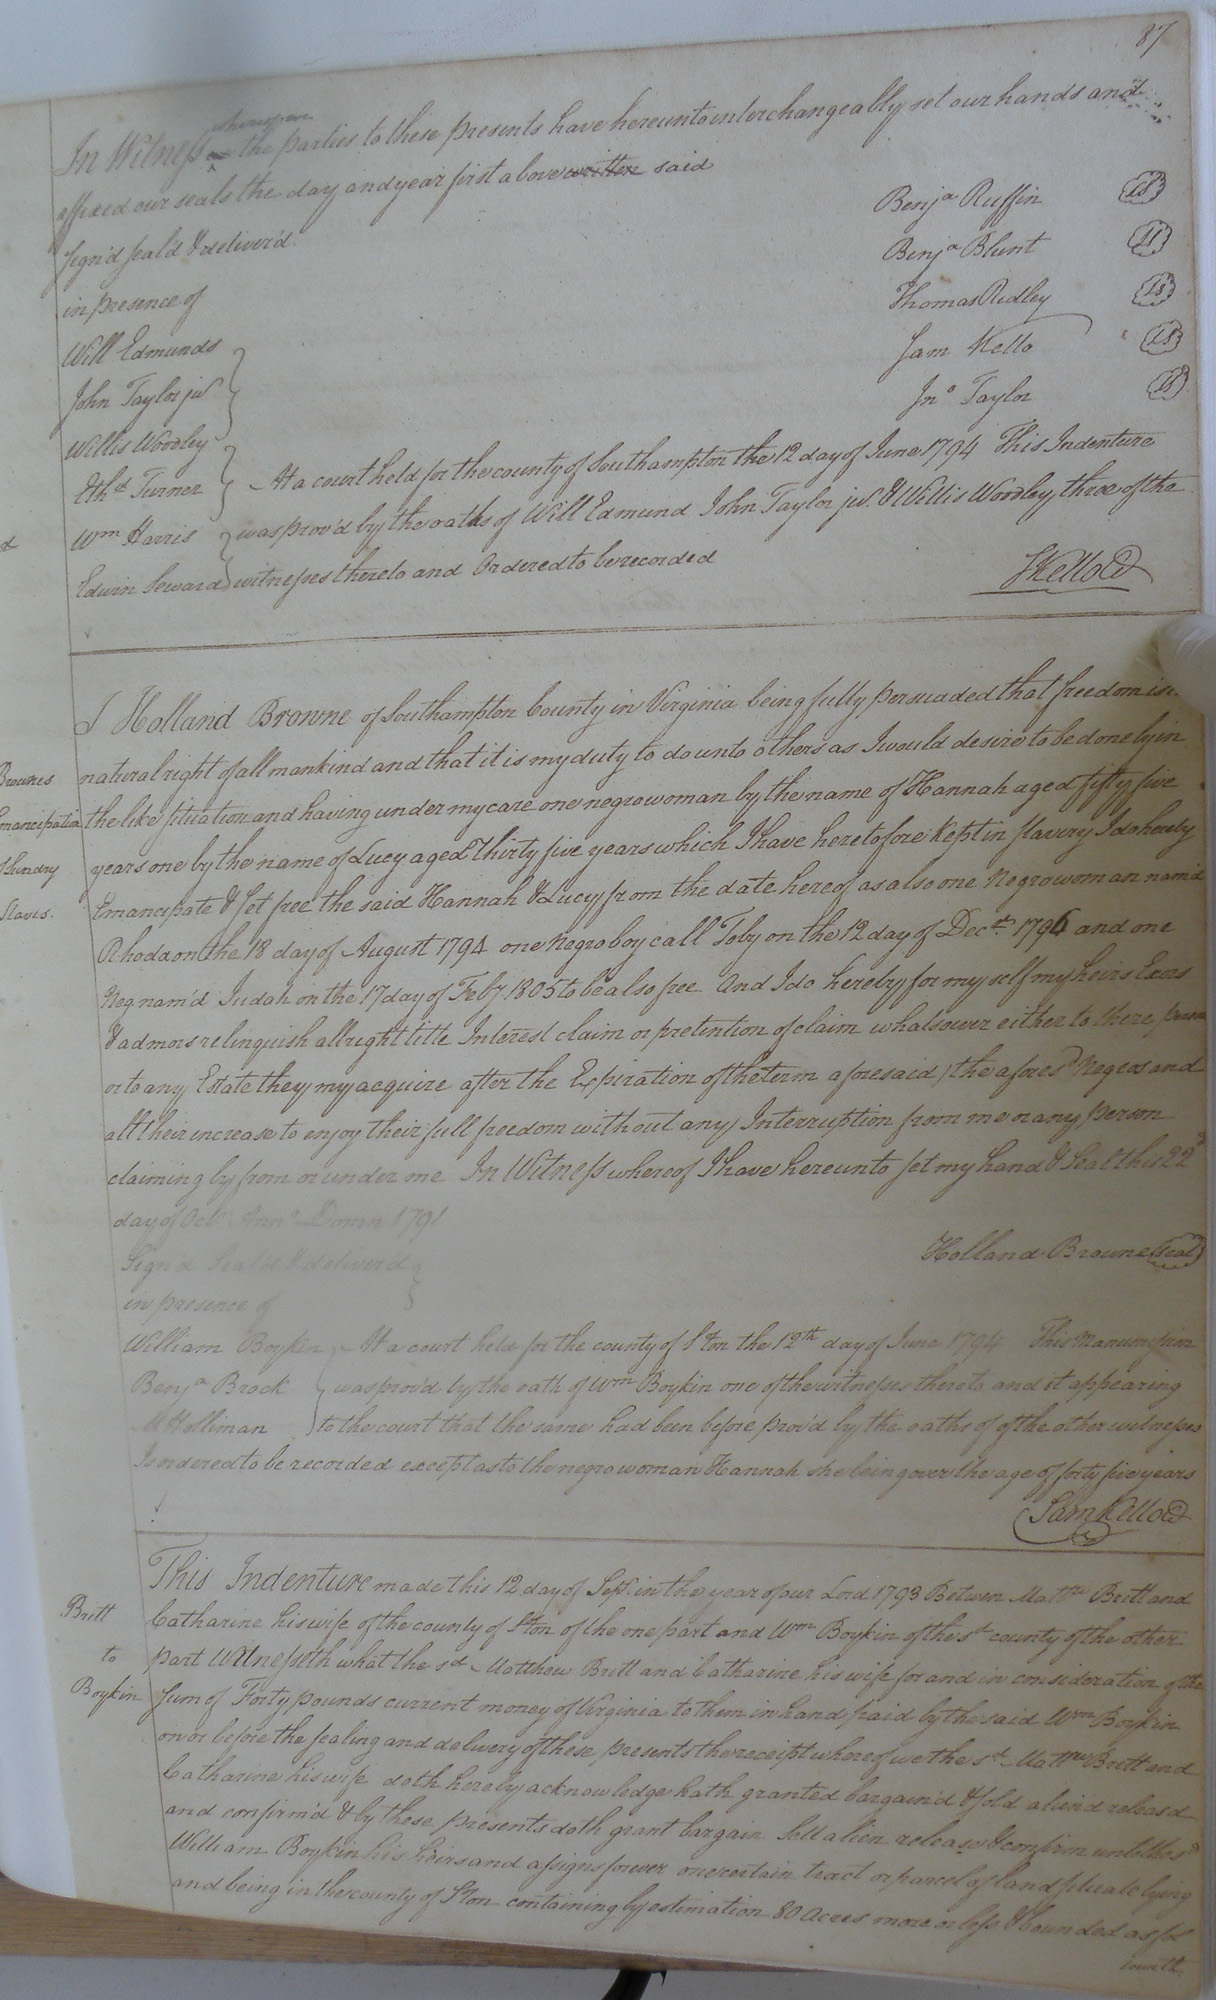 87
In Witness whereof the parties to these presents have hereunto interchangeably set our hands and
affixed our seals the day and year first above written said
sign'd seal'd & deliver'd
in presence of
Benja Ruffin LS
Benja Blunt LS
Thomas Ridley LS
Sam Kello LS
Jno Taylor LS
Will Edmunds
John Taylor jur
Willis Woodley
Ethd Turner
Wm Harris
Edwin Seward
At a court held for the county of Southampton the 12 day of June 1794 This Indenture
was prov'd by the oaths of Will Edmund John Taylor jur. & Willis Woodley three of the
witnesses thereto and Ordered to be recorded
SKelloCl
Brownes
Emancipatia
Sundry
Slaves.
I Holland Browne of Southampton County in Virginia being fully persuaded that freedom is
natural right of all mankind and that it is my duty to do unto others as I would desire to be done by in
the like situation and having under my care one negro woman by the name of Hannah aged fifty five
years one by the name of Lucy aged thirty five years which I have heretofore kept in slavery I do hereby
Emancipate & set free the said Hannah & Lucy from the date hereof as also one Negro woman nam'd
Rhoda on the 18 day of August 1794 one negro boy call Toby on the 12 day of Decr 1796 and one
Neg nam'd Judah on the 17 day of Feby 1805 to be also free And I do hereby for my self my heirs Exors
& admors relinquish all right title Interest claim or pretention of claim whatsoever either to there person
or to any Estate they my acquire after the Expiration of the term aforesaid the aforesd Negros and
all their increase to enjoy their full freedom without any Interruption from me or any person
claiming by from or under me In Witness whereof I have hereunto set my hand & Seal this 22d
day of Octr Anno Domn 1791
Holland Browne Seal
Sign'd Seal'd & deliver'd
in presence of
William Boykin
Benja Brock
Holliman
At a court held for the county of Ston the 12th day of June 1794 This Manumission
was prov'd by the oath of Wm Boykin one of the witnesses thereto and it appearing
to the court that the same had been before prov'd by the oaths of of the other witnesses
Is ordered to be recorded except as to the negro woman Hannah she being over the age of forty five years
Sam KelloCl
Britt
to
Boykin
This Indenture made this 12 day of Sept in the year of our Lord 1793 Betwen Mattw Britt and
Catharine his wife of the county of Ston of the one part and Wm Boykin of the sd county of the other
part Witnesseth what the sd Matthew Britt and Catharine his wife for and in consideration of the
sum of Forty pounds current money of Virginia to them in hand paid by the said Wm Boykin
on or before the sealing and delivery of these presents the receipt whereof we the sd Mattw Britt and
Catharine his wife doth hereby acknowledge hath granted bargain'd & sold aliend releasd
and confirm'd & by these presents doth grant bargain sell alien release & confirm unto the sd
William Boykin his heirs and assigns forever one certain tract or parcel of land situate lying
and being in the county of Ston containing by estimation 80 acres more or less & bounded as fol
loweth